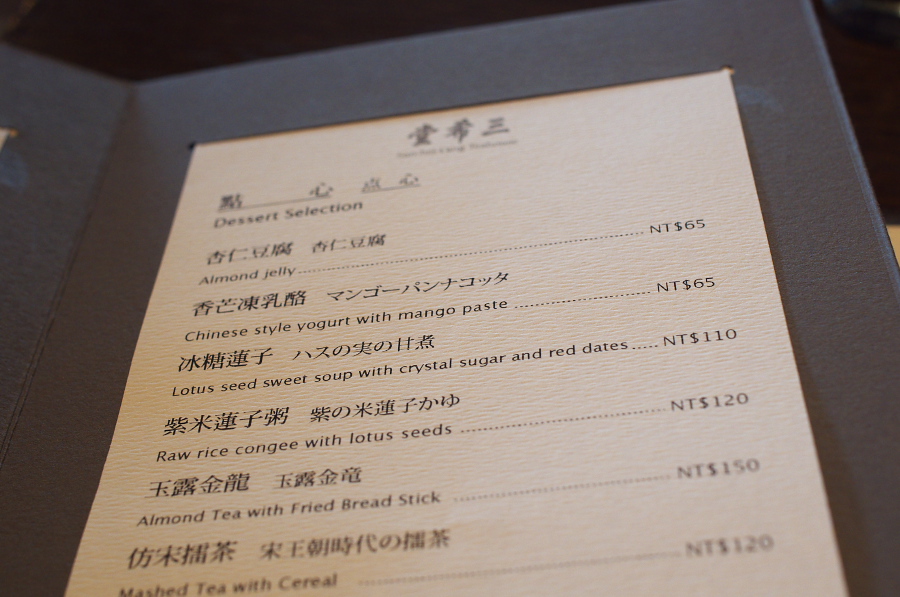 三希堂
點心 点心
Dessert Selection
杏仁豆腐 杏仁豆腐
Almond jelly NT$65
香芒凍乳酪 マンゴーパンナコッタ
Chinese style yogurt with mango paste NT$65
冰糖蓮子 ハスの実の甘煮
Lotus seed sweet soup with crystal sugar and red dates NT$110
紫米蓮子粥 紫の米蓮子かゆ
Raw rice congee with lotus seeds NT$120
玉露金龍 玉露金竜
Almond Tea with Fried Bread Stick NT$150
仿宋擂茶 宋王朝時代の擂茶
Mashed Tea with Cereal NT$120